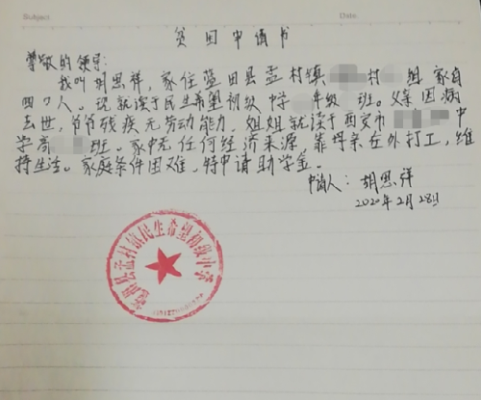 Subject
Date
贫困申请书
尊敬的领导:
我叫胡思祥,家住蓝田县孟村镇 村 组 家有
四口人。现就读于民生希望初级中学 年级 班。父亲因病
去世,爷爷残疾无劳动能力,姐姐就读于西安市 中
学高 班。家中无任何经济来源,靠母亲在外打工,维
持生活。家庭条件困难,特申请助学金。
申请人:胡思祥
2020年2月28日
蓝田县孟村镇民生希望初级中学